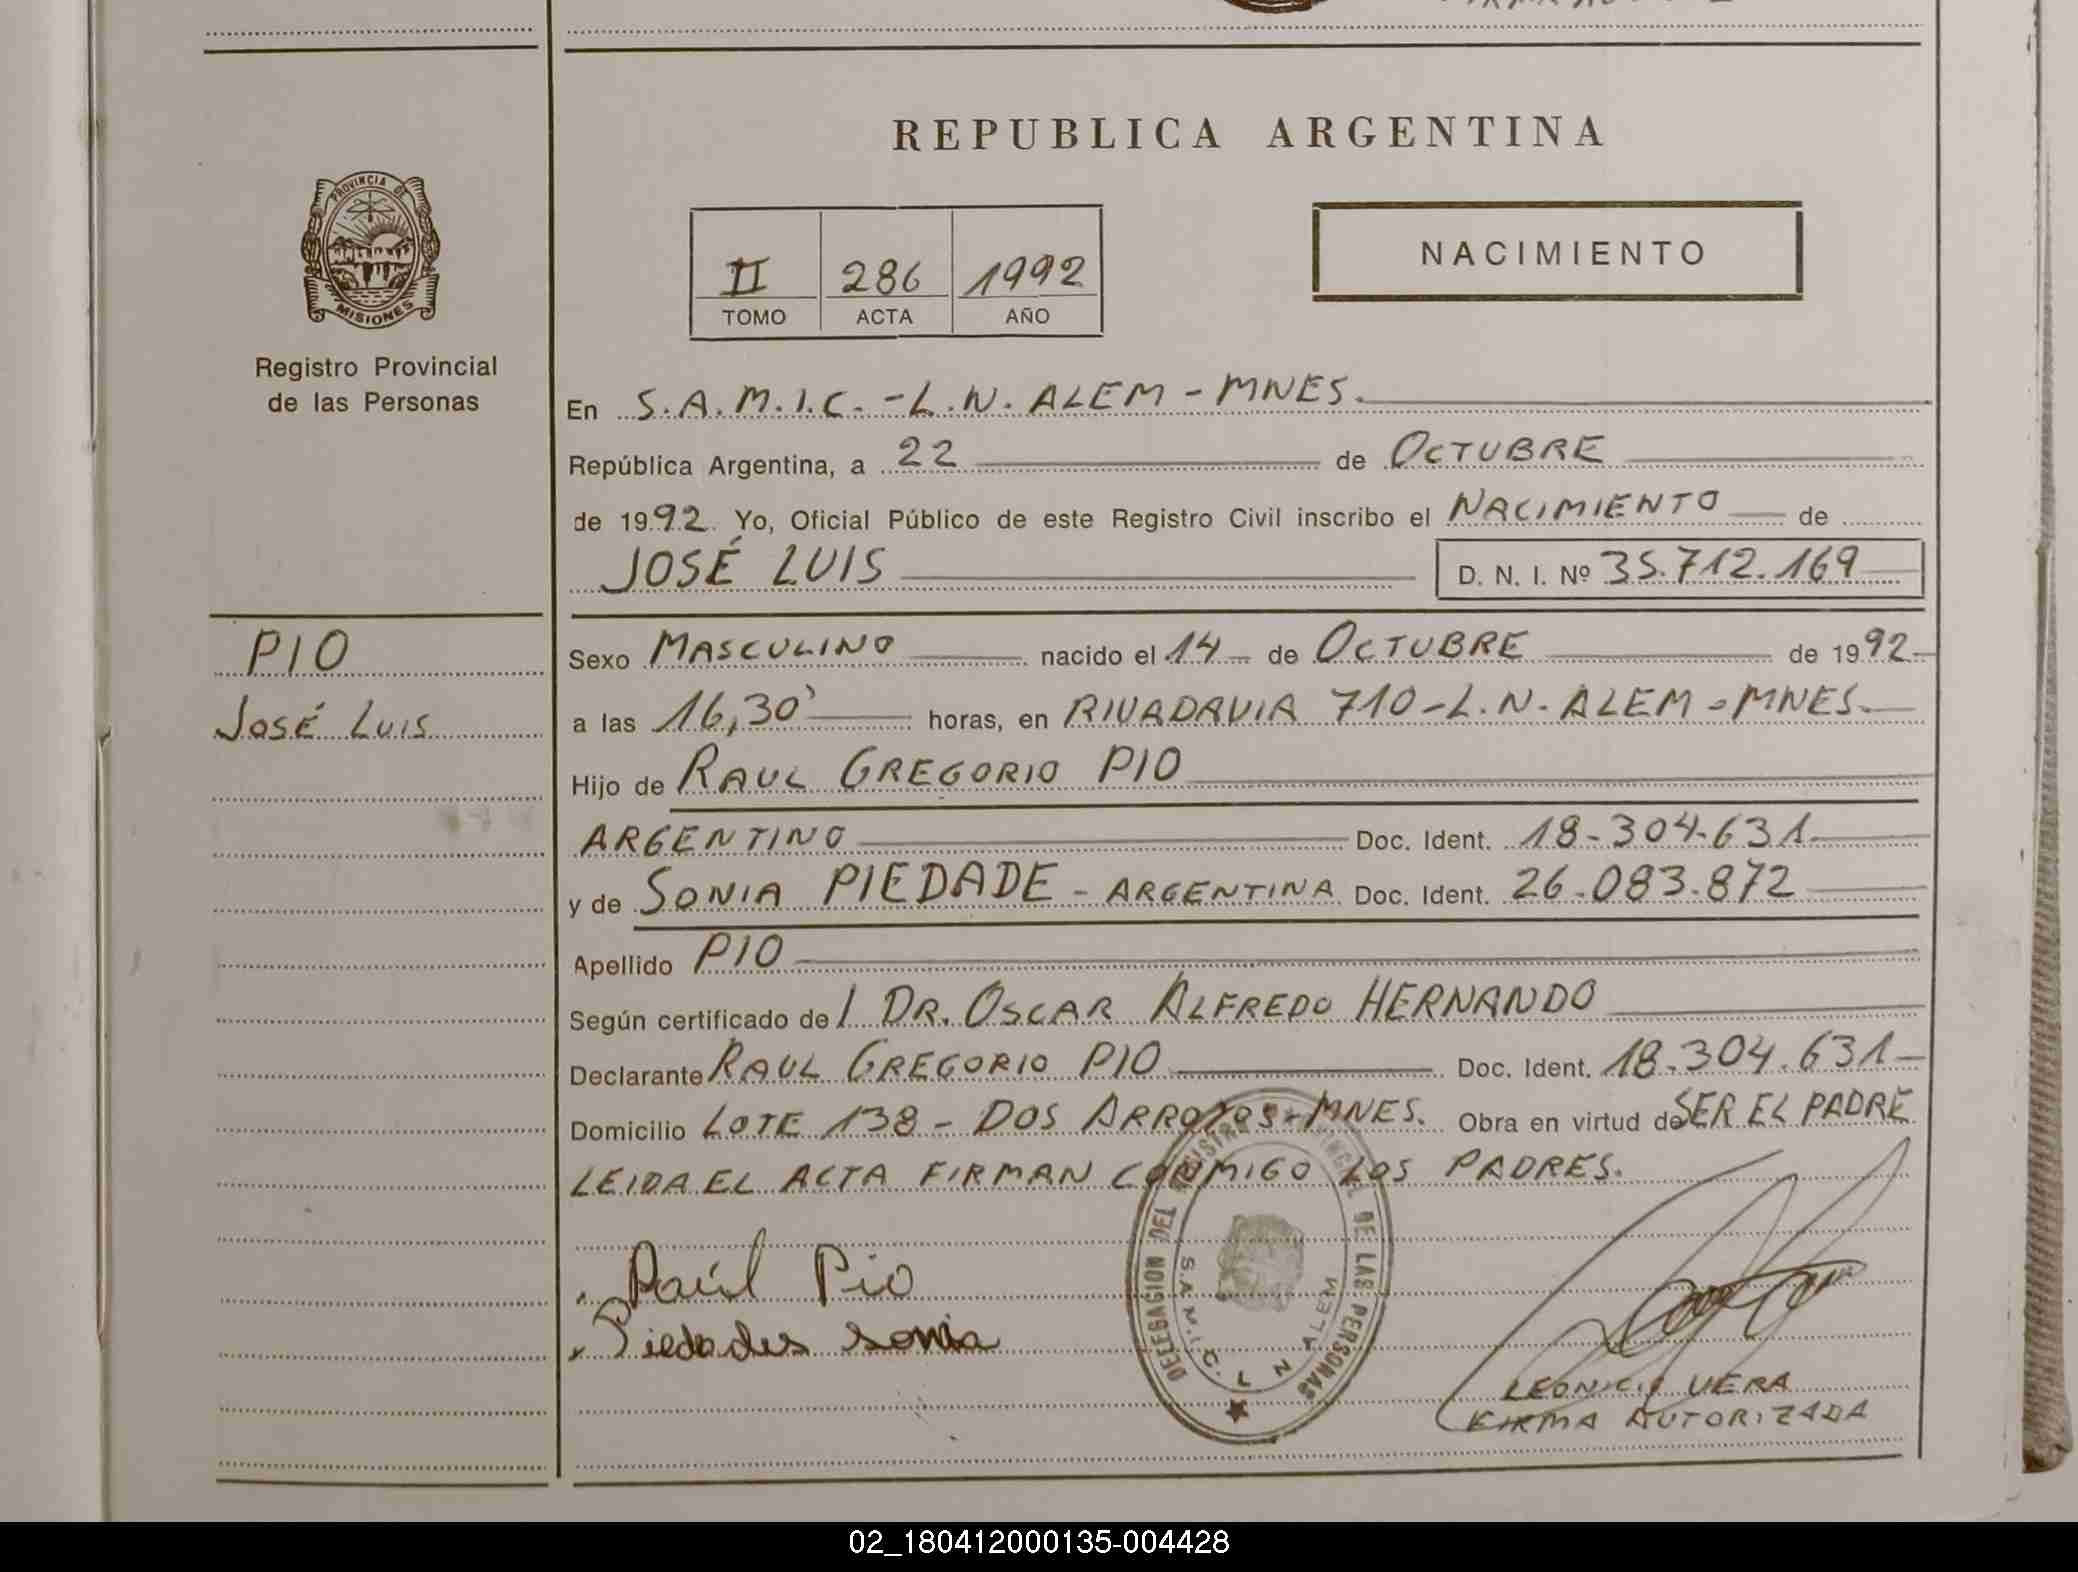 REPUBLICA ARGENTINA
PROVINCIA DE
MISIONES
Registro Provincial
de las Personas
II 286 1992
TOMO ACTA AÑO
NACIMIENTO
En S.A.M.I.C. - L.N. ALEM - MNES.
República Argentina, a 22 de OCTUBRE
de 1992 Yo, Oficial Público de este Registro Civil inscribo el NACIMIENTO de
JOSÉ LUIS D. N. I. Nº 35.712.169
PIO
JOSÉ LUIS
Sexo MASCULINO nacido el 14 de OCTUBRE de 1992
a las 16,30' horas, en RIVADAVIA 710 - L.N. ALEM - MNES.
Hijo de RAUL GREGORIO PIO
ARGENTINO Doc. Ident. 18-304-631
y de SONIA PIEDADE - ARGENTINA Doc. Ident. 26.083.872
Apellido PIO
Según certificado del DR. OSCAR ALFREDO HERNANDO
Declarante RAUL GREGORIO PIO Doc. Ident. 18.304.631
Domicilio LOTE 138 - DOS ARROYOS - MNES. Obra en virtud de SER EL PADRE
LEIDA EL ACTA FIRMAN CONMIGO LOS PADRES.
Raúl Pio
Piedades sonia
DELEGACION DEL REGISTRO PROVINCIAL DE LAS PERSONAS
S.A.M.I.C. L N ALEM
LEONICIO VERA
FIRMA AUTORIZADA
02_180412000135-004428